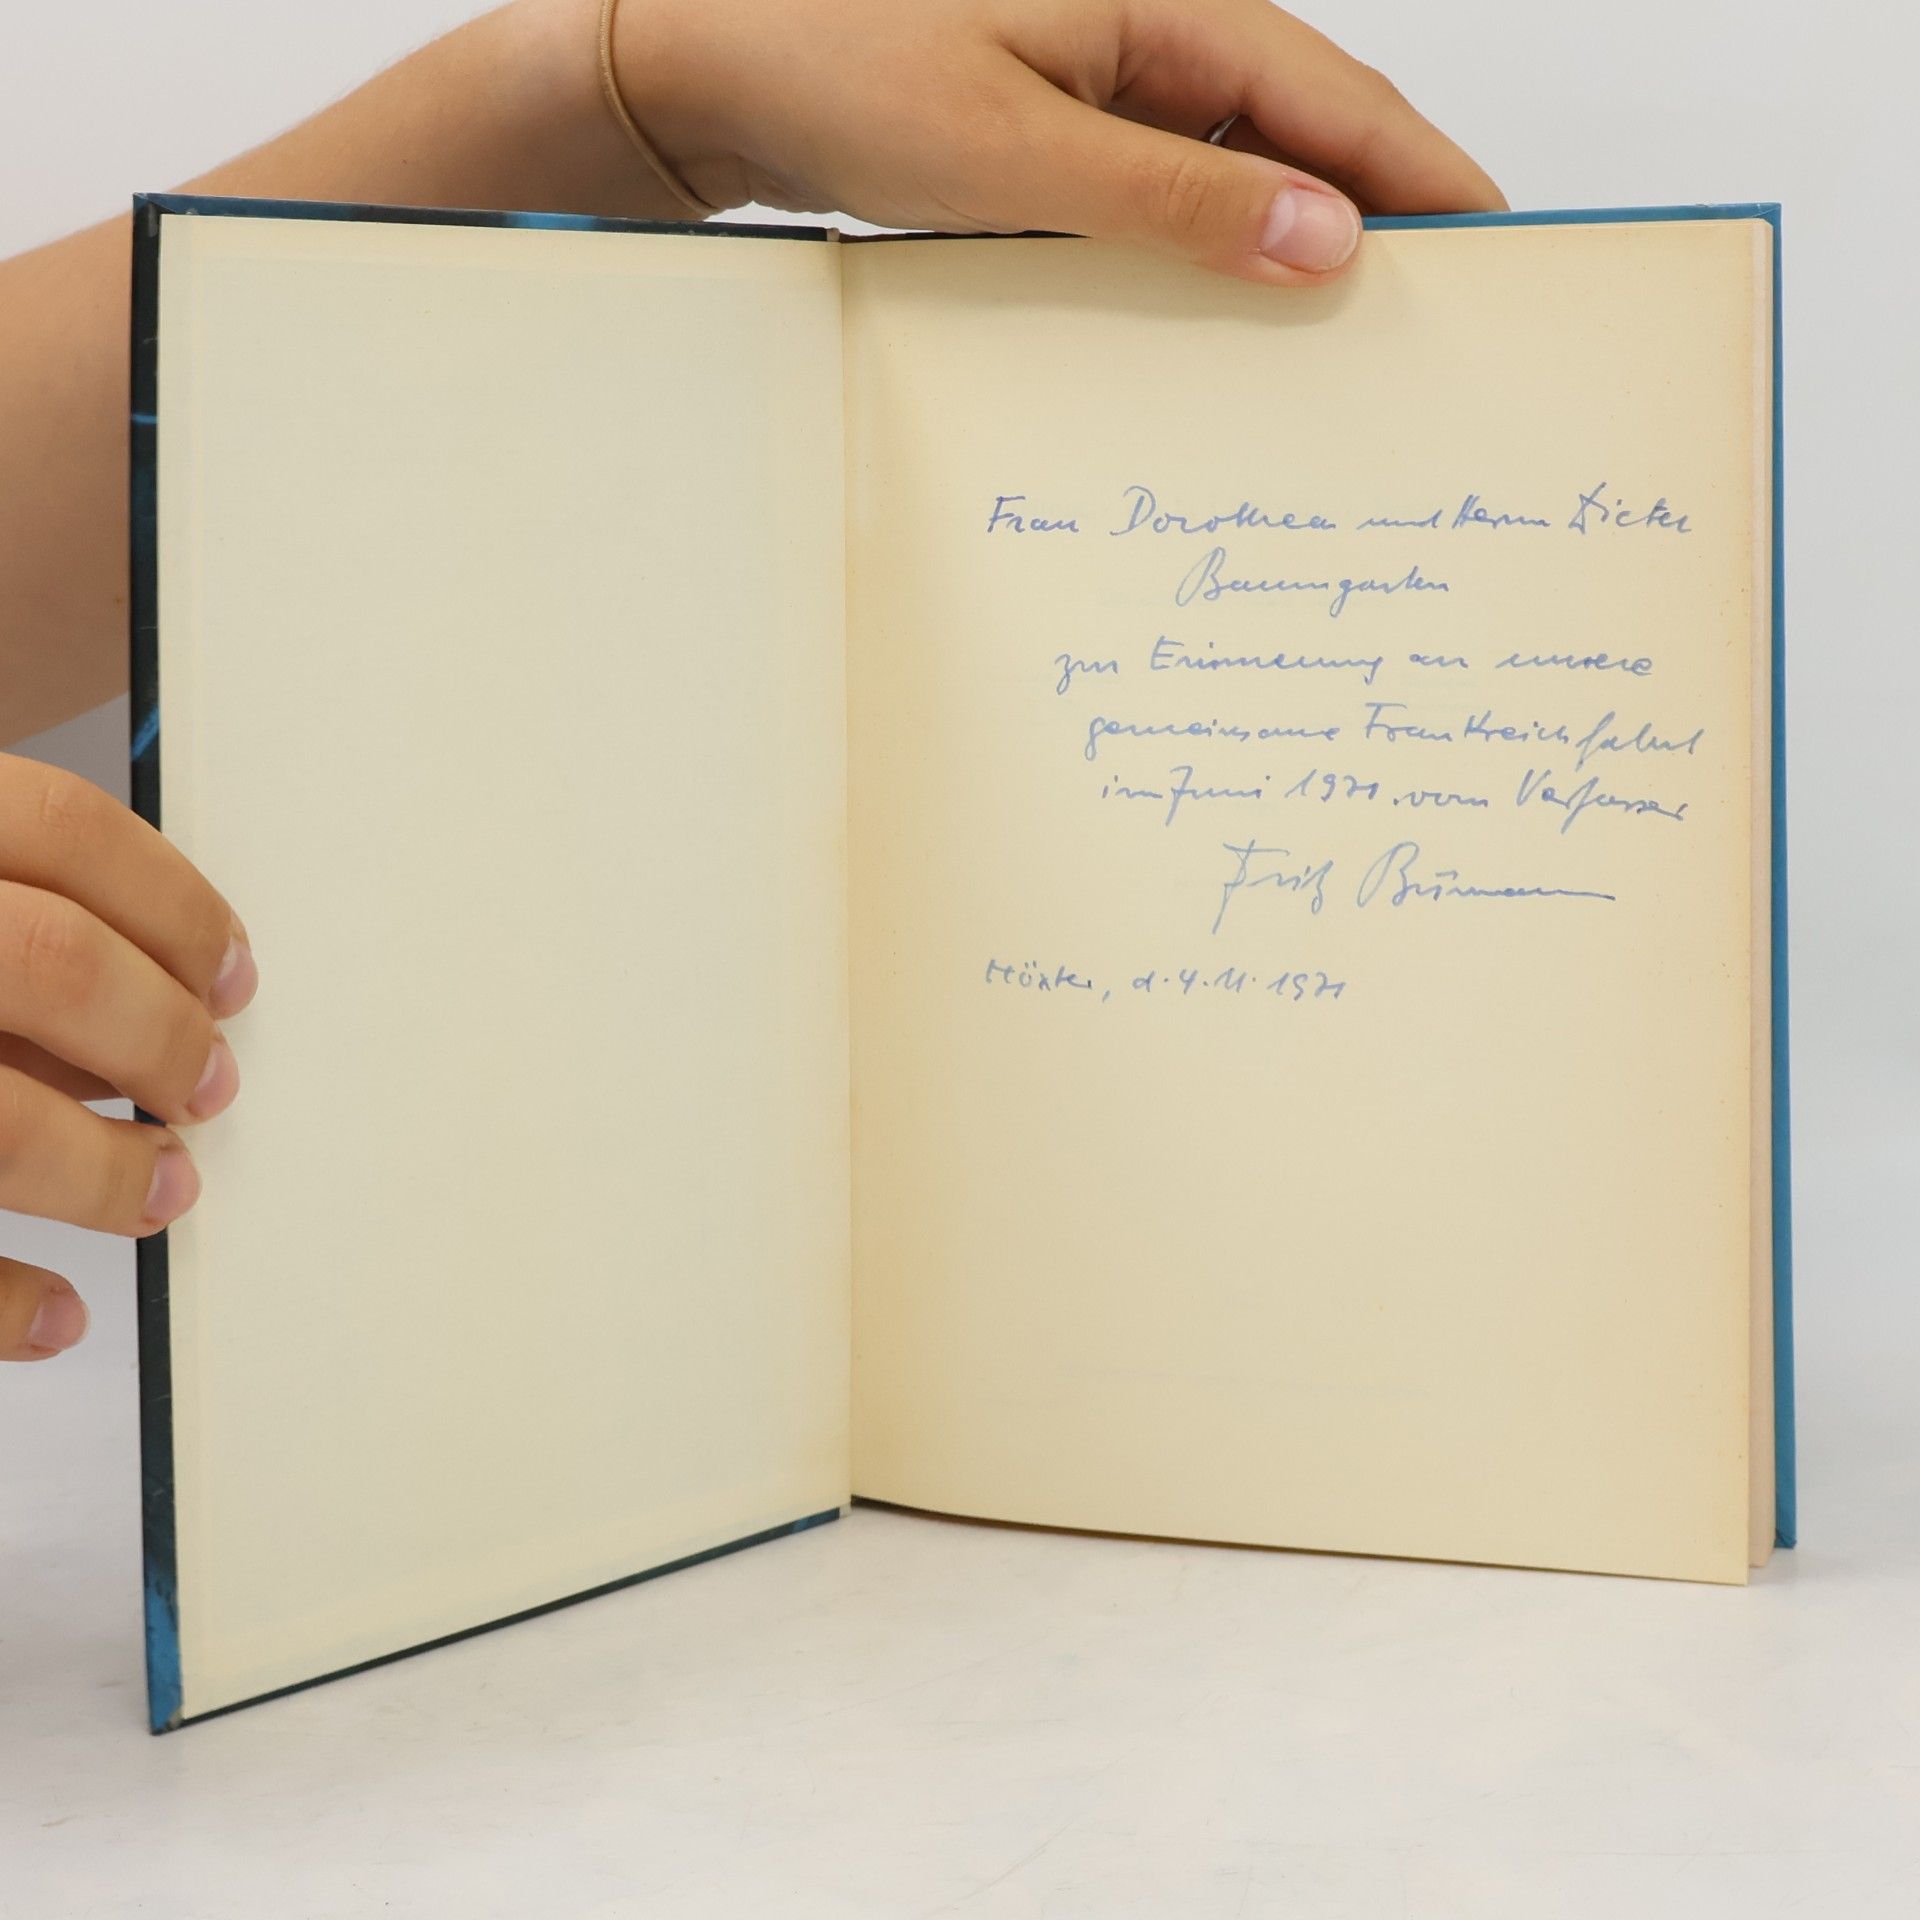 Frau Dorothea und Herrn Dieter
Baumgarten
zur Erinnerung an unsere
gemeinsame Frankreichfahrt
im Juni 1971. vom Verfasser
Fritz
Höxter, d. 4. 11. 1971